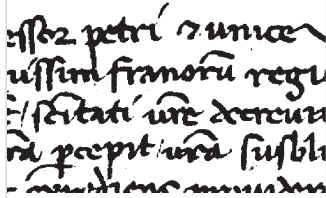 essor petri ⁊ unice
uissim franorū regi
scītati ūre decreui
rā ꝑcepit /ūrā susbli